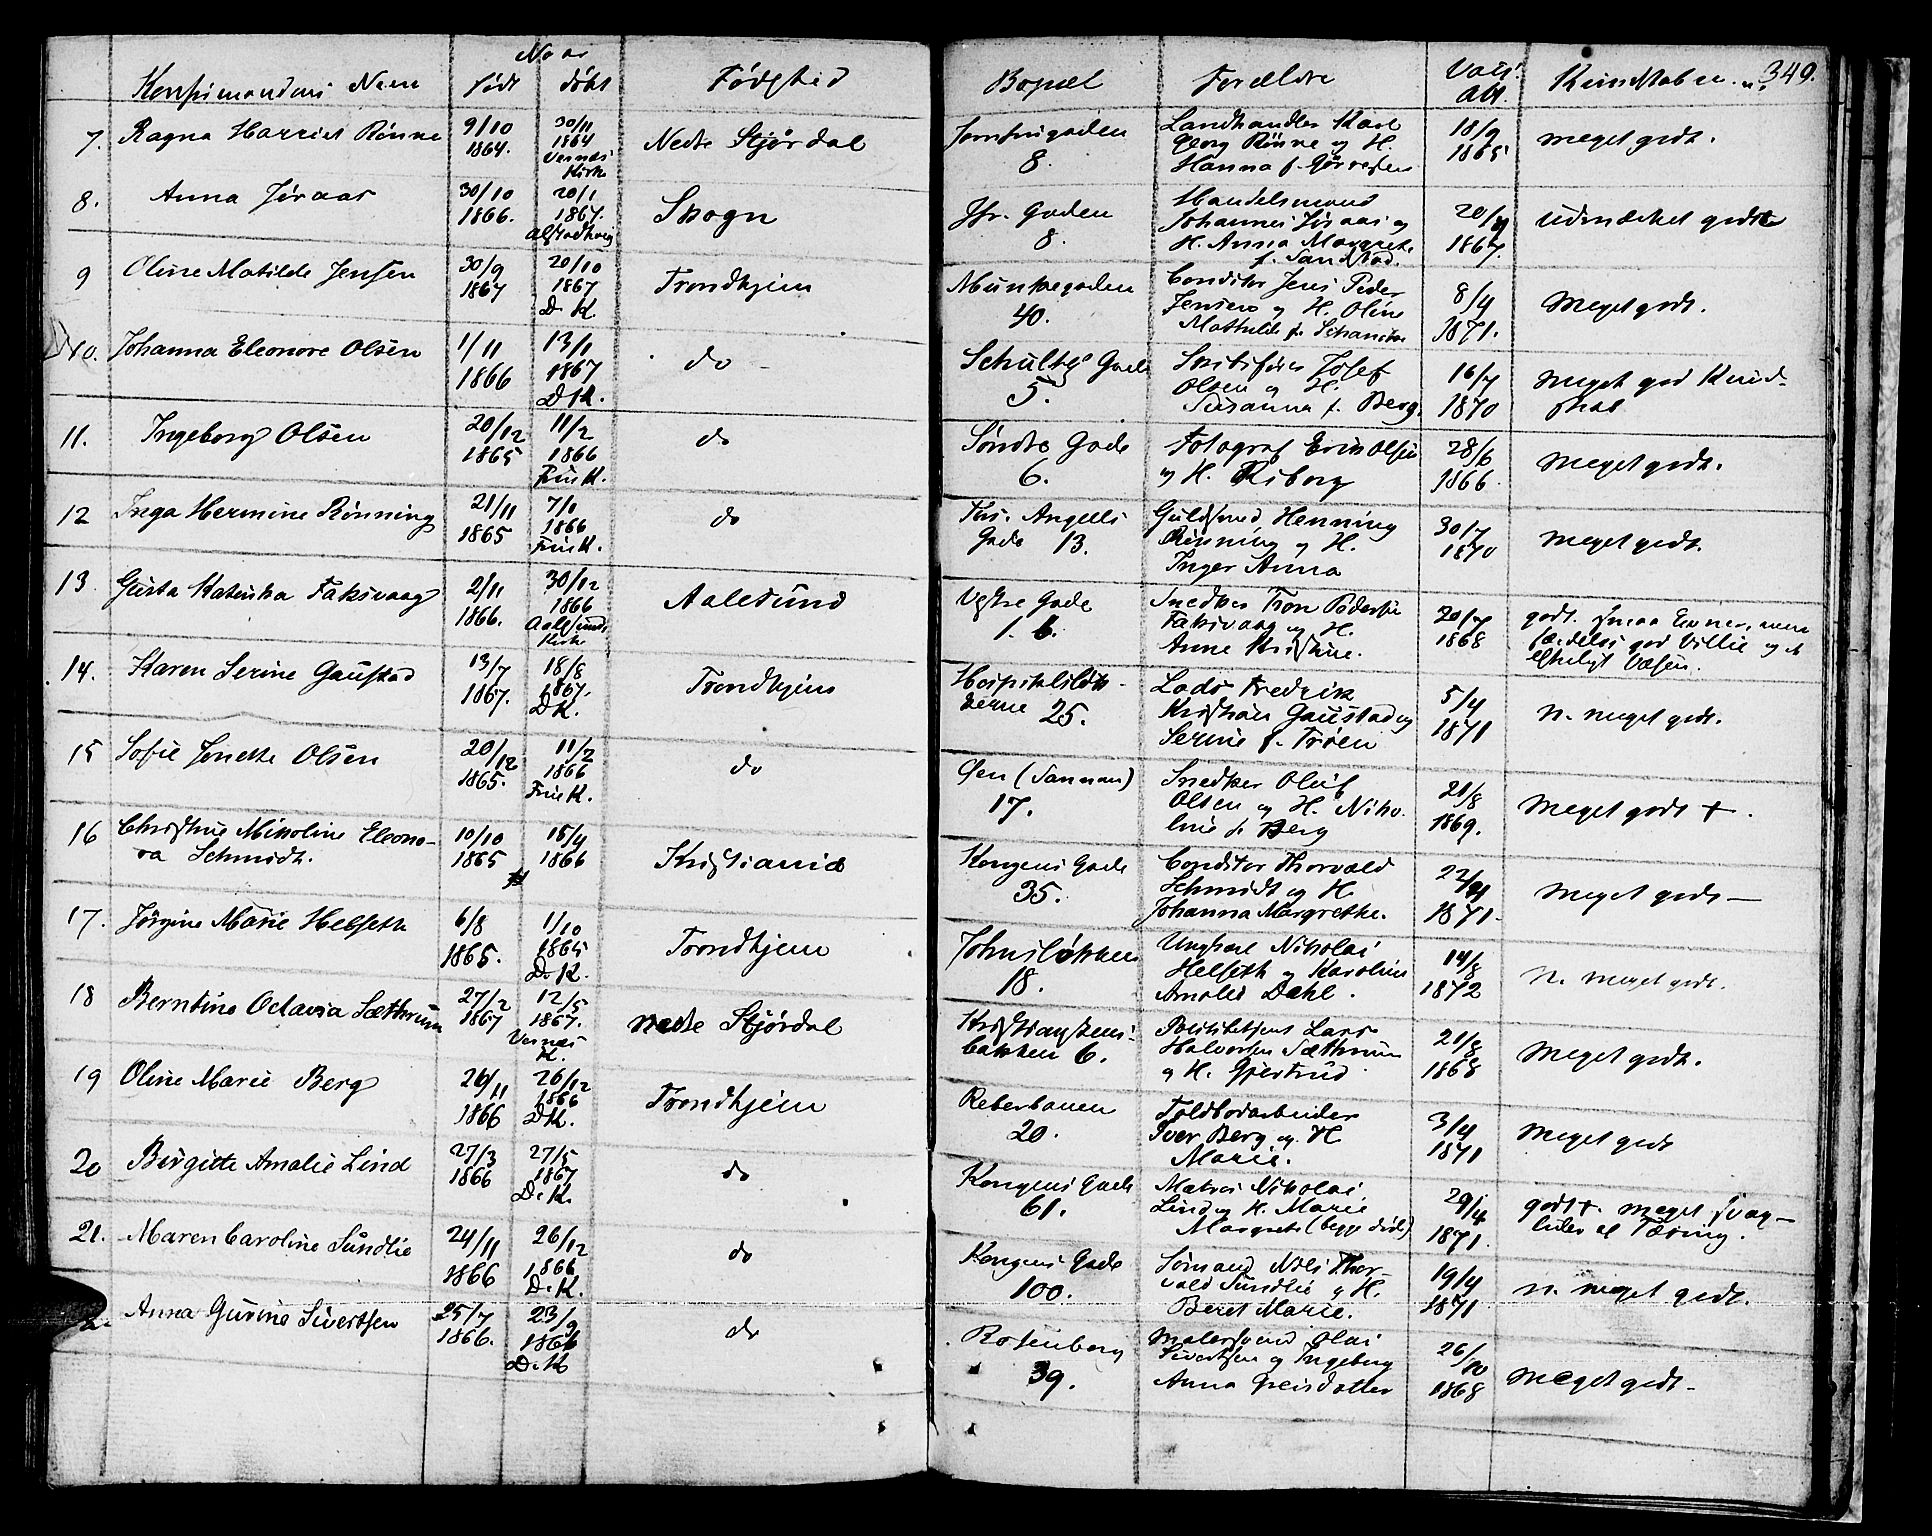 349.
Konfirmandens Navn
Naar
født
døbt
Fødested
Bopæl
Forældre
Vacc.
Att.
Kundskab
7.
Ragna Harriet Rønne
9/10
1864.
30/11
1864
Vernæs
Kirke
Nedre Stjørdal
Jomfrugaden
8.
Landhandler Karl
Georg Rønne og H.
Hanna f.
18/9
1865
meget godt.
8.
Anna Jøraas
30/10
1866.
20/1
1867.
Alstadhaug
Skogn
Jfr. Gaden
8.
Handelsmand
Johannes Jøraas og
H. Anna Margrete
f. Sandstad.
20/9
1867.
udmærket godt
9
Oline Matilde Jensen
30/9
1867
20/10
1867
D. K.
Trondhjem
Munkegaden
40.
Conditor Jens Peder
Jensen og H. Oline
Mathilde f.
8/4
1871.
Meget godt.
10.
Johanna Eleonore Olsen
1/11
1866
13/1
1867
D. K.
do
Schultz' Gade
5.
Skibsfører Josef
Olsen og H.
Susanna f. Berg.
16/7
1870
meget god Kund-
skab
11.
Ingeborg Olsen
20/12
1865
11/2
1866
Frue K.
do
Søndre Gade
6.
Fotograf Erik Olsen
og H. Riborg
28/6
1866.
Meget godt.
12
Inga Hermine Rønning
21/11
1865
7/1
1866
Frue K.
do
Ths. Angells
Gade 13.
Guldsmed Henning
Rønning og H.
Inger Anna
30/7
1870
Meget godt.
13.
Gusta Katinka Faksvaag
2/11
1866.
30/12
1866
Aalesunds
Kirke
Aalesund
Vestre Gade
1. b.
Snedker Tron Pedersen
Faksvaag og H.
Anne Kristine.
20/7
1868
godt. smaa Evner, men
særdeles god Villie og et
elskeligt Væsen.
14.
Karen Serine Gaustad
13/7
1867.
18/8
1867.
D. K.
Trondhjem
Hospitalsløk-
kerne 25.
Lods Fredrik
Kristian Gaustad og
Serine f. Trøen
5/4
1871
n. meget godt.
15
Sofie Jonette Olsen
20/12
1865.
11/2
1866
Frue K.
do
Øen (Sannan)
17.
Snedker Oluf
Olsen og H. Niko-
line f. Berg
21/8
1869.
Meget godt +.
16
Christine Nikoline Eleono-
ra Schmidt.
10/10
1865
15/4
1866
Kristiania
Kongens Gade
35.
Conditor Thorvald
Schmidt og H.
Johanna Margrethe.
1871.
Meget godt —
17.
Jørgine Marie Helseth
6/8
1865.
1/10
1865
D. K.
Trondhjem
Johnsløkken
18.
Ungkarl Nikolai
Helseth og Karoline
Amalie Dahl.
14/8
1872
n. meget godt.
18
Berntine Octavia Sæthrum
27/2
1867
12/5
1867.
Vernæs
K.
Nedre Stjørdal
Kristianstens-
bakken 6.
Politibetjent Lars
Halvorsen Sæthrum
og H. Gjertrud
21/8
1868
Meget godt.
19
Oline Marie Berg
26/11
1866
26/12
1866
D. K.
Trondhjem
Reberbanen
20.
Toldbodarbeider
Iver Berg og H.
Marie.
3/4
1871
Meget godt
20
Birgitte Amalie Lind
27/3
1866
27/5
1867
D. K.
do
Kongens Gade
61.
Matros Nikolai
Lind og H. Marie
Margrete (begge døde)
29/4
1871.
godt +. meget svag -
lider af Tæring.
21.
Maren Caroline Sundlie
24/11
1866
26/12
1866
D. K.
do
Kongens Gade
100.
Sømand Nils Thor-
vald Sundlie og H.
Beret Marie.
19/4
1871
n. meget godt.
Anna Gurine Sivertsen
25/7
1866.
23/9
1866
D. K.
do
Rosenborg
39.
Malersvend Olai
Sivertsen og Ingeborg
Anna
26/10
1868
Meget godt.